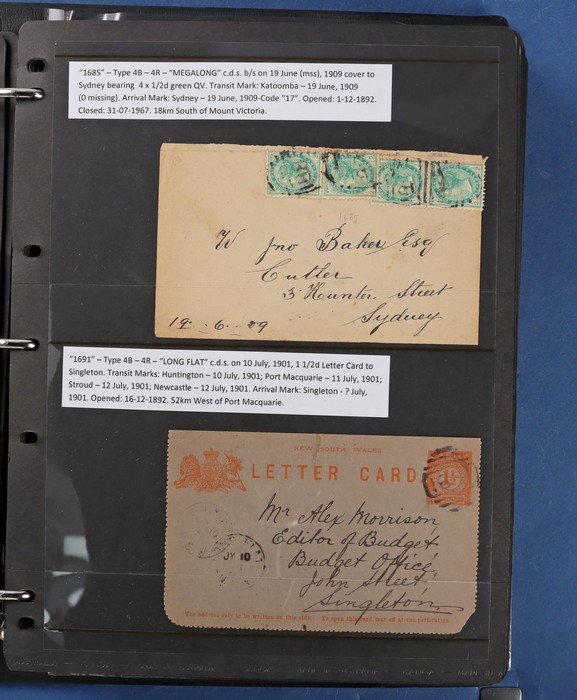 "1685" – Type 4B – 4R – "MEGALONG" c.d.s. b/s on 19 June (mss), 1909 cover to
Sydney bearing 4 x 1/2d green QV. Transit Mark: Katoomba – 19 June, 1909
(0 missing). Arrival Mark: Sydney – 19 June, 1909-Code "17". Opened: 1-12-1892.
Closed: 31-07-1967. 18km South of Mount Victoria.
1685
W Jno Baker Esq
Cutler
3 Hunter Street
Sydney
19. 6. 09
"1691" – Type 4B – 4R – "LONG FLAT" c.d.s. on 10 July, 1901, 1 1/2d Letter Card to
Singleton. Transit Marks: Huntington – 10 July, 1901; Port Macquarie – 11 July, 1901;
Stroud – 12 July, 1901; Newcastle – 12 July, 1901. Arrival Mark: Singleton - ? July,
1901. Opened: 16-12-1892. 52km West of Port Macquarie.
NEW SOUTH WALES
LETTER CARD
Mr Alex Morrison
Editor of Budget
Budget Office,
John Street
JY 10
Singleton
The address only to be written on this side. To open this card tear off at the perforation.